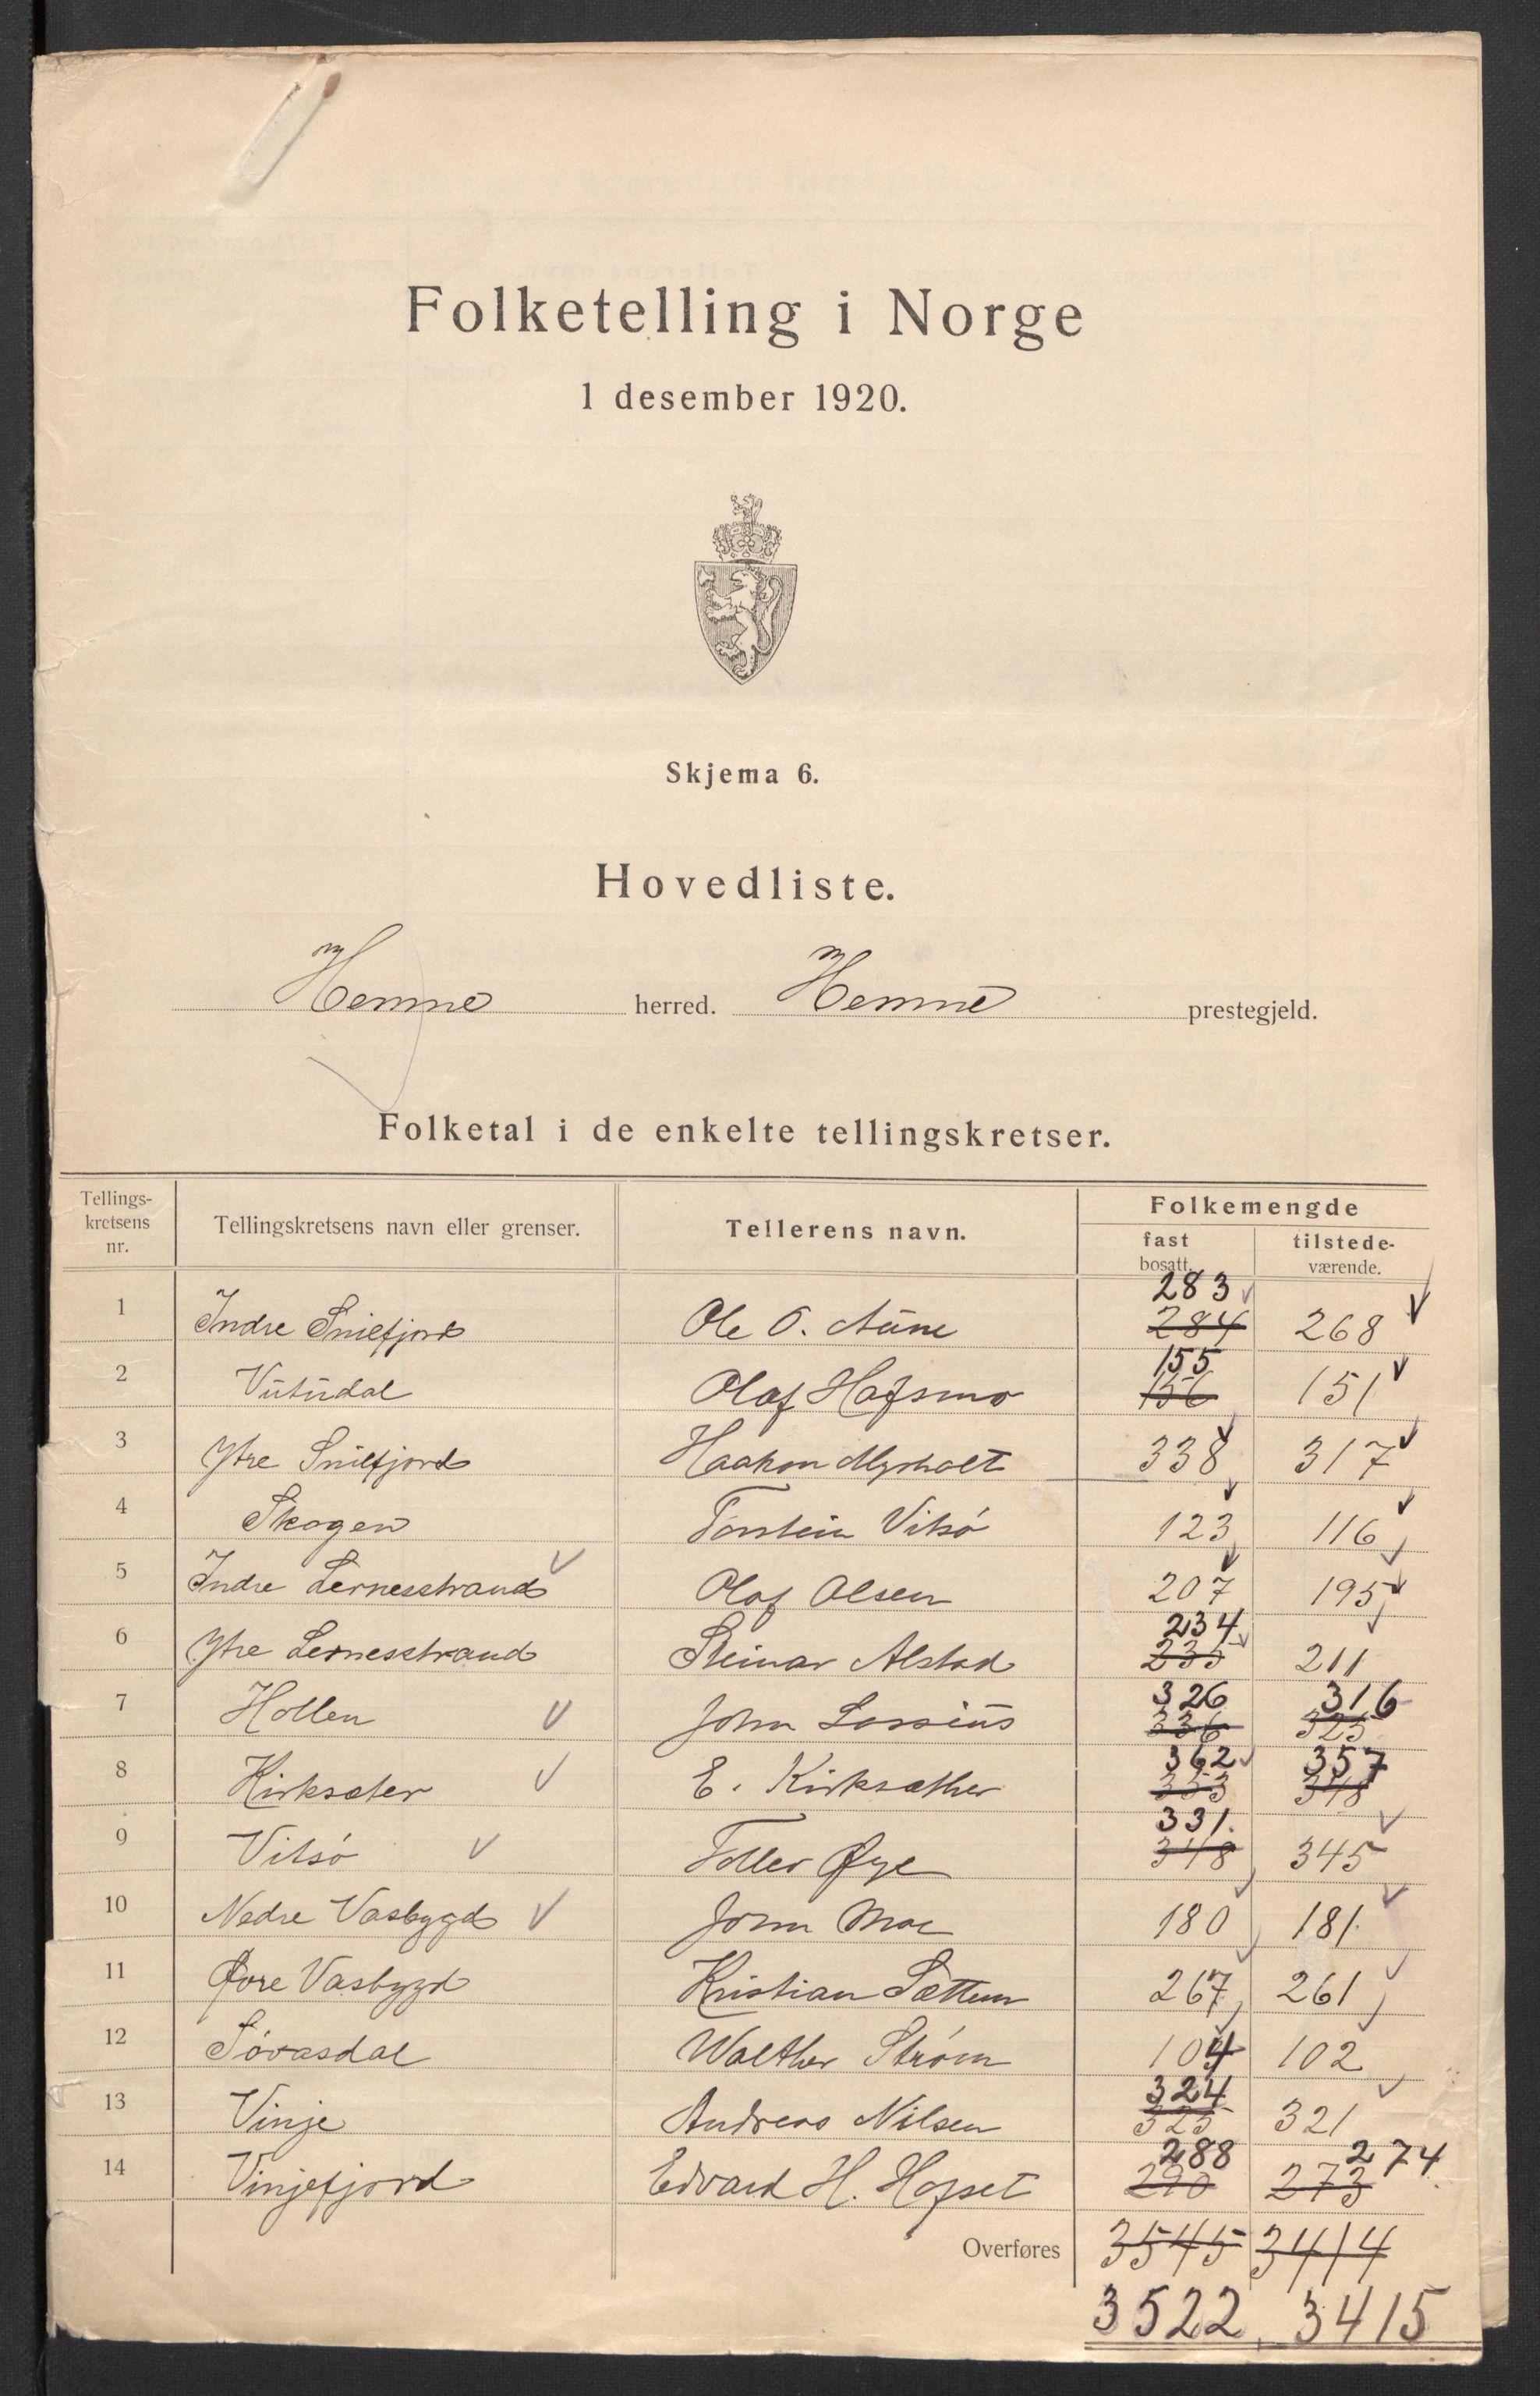 Folketelling i Norge
1 desember 1920.
Skjema 6.
Hovedliste.
Hemne herred. Hemne prestegjeld.
Folketal i de enkelte tellingskretser.
Tellings-kretsens nr. Tellingskretsens navn eller grenser. Tellerens navn. Folkemengde fast bosatt. tilstede-værende.
283
1 Indre Snilfjord Ole O. Aune 284 268
155
2 Vutudal Olaf Hafsmo 156 151
3 Ytre Snilfjord Haakon Myrholt 338 317
4 Skogen Torstein Vitsø 123 116
5 Indre Lernesstrand Olaf Olsen 207 195
234
6 Ytre Lernesstrand Steinar Alstad 235 211
326 316
7 Hollen John Lossius 336 325
362 357
8 Kirksæter E. Kirksæther 353 348
331.
9 Vitsø Toller Øye 348 345
10 Nedre Vasbygd John Moe 180 181
11 Øvre Vasbygd Kristian Sættem 267 261
12 Søvasdal Walther Strøm 104 102
324
13 Vinje Andreas Nilsen 325 321
288 274
14 Vinjefjord Edvard H. Hofset 290 273
Overføres 3545 3414
3522 3415